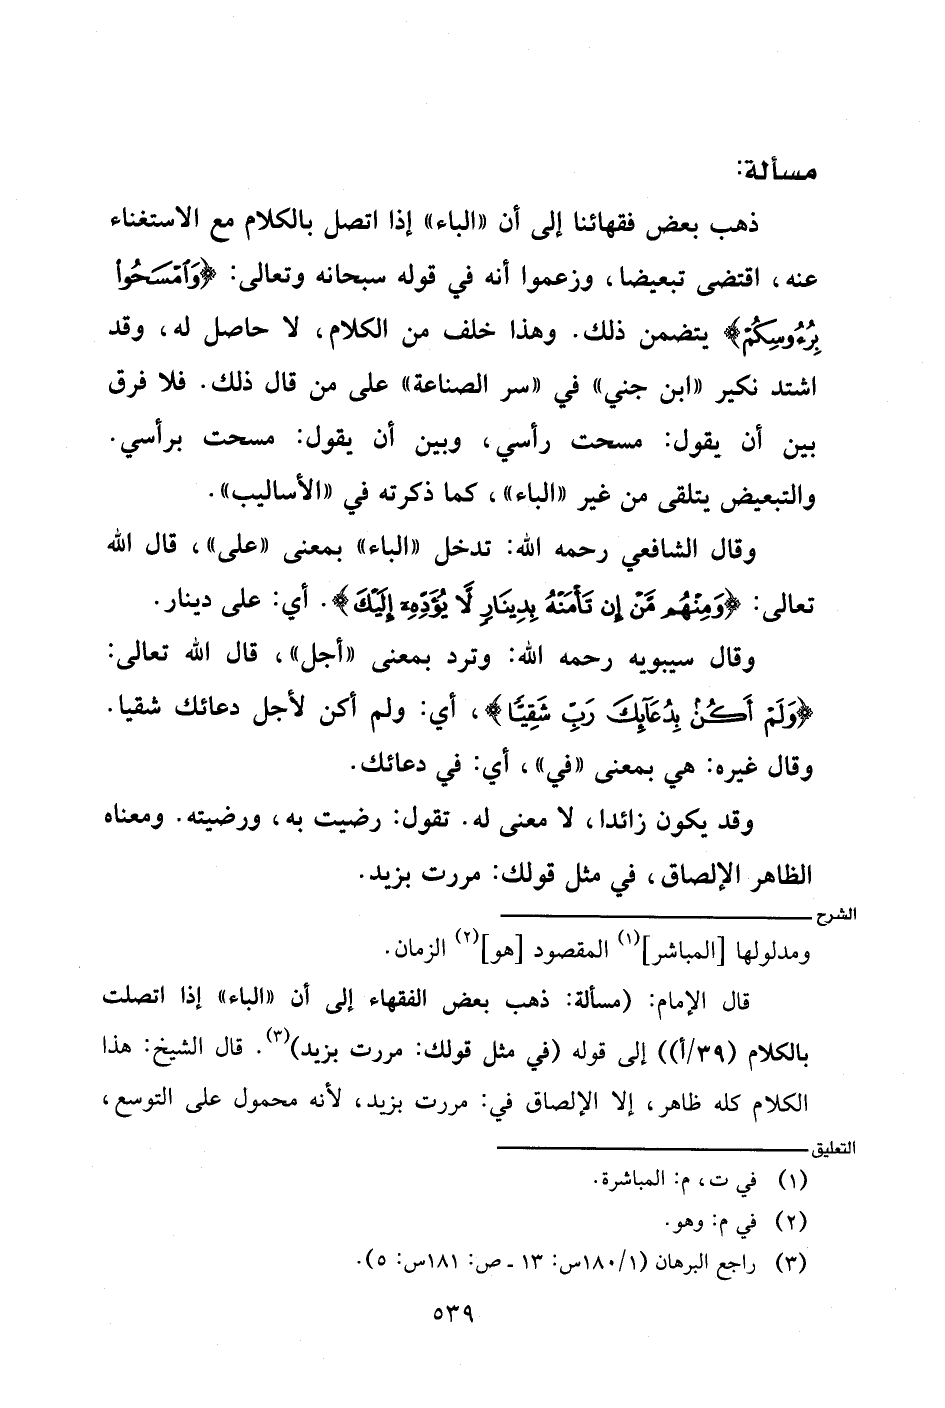 مسألة:
ذهب بعض فقهائنا إلى أن «الباء» إذا اتصل بالكلام مع الاستغناء
عنه، اقتضى تبعيضا، وزعموا أنه في قوله سبحانه وتعالى: ﴿وَٱمْسَحُوا۟
بِرُءُوسِكُمْ﴾ يتضمن ذلك. وهذا خلف من الكلام، لا حاصل له، وقد
اشتد نكير «ابن جني» في «سر الصناعة» على من قال ذلك. فلا فرق
بين أن يقول: مسحت رأسي، وبين أن يقول: مسحت برأسي.
والتبعيض يتلقى من غير «الباء»، كما ذكرته في «الأساليب».
وقال الشافعي رحمه الله: تدخل «الباء» بمعنى «على»، قال الله
تعالى: ﴿وَمِنْهُم مَّنْ إِن تَأْمَنْهُ بِدِينَارٍ لَّا يُؤَدِّهِۦٓ إِلَيْكَ﴾. أي: على دينار.
وقال سيبويه رحمه الله: وترد بمعنى «أجل»، قال الله تعالى:
﴿وَلَمْ أَكُنۢ بِدُعَآئِكَ رَبِّ شَقِيًّا﴾، أي: ولم أكن لأجل دعائك شقيا.
وقال غيره: هي بمعنى «في»، أي: في دعائك.
وقد يكون زائدا، لا معنى له. تقول: رضيت به، ورضيته. ومعناه
الظاهر الإلصاق، في مثل قولك: مررت بزيد.
الشرح
ومدلولها [المباشر](١) المقصود [هو](٢) الزمان.
قال الإمام: (مسألة: ذهب بعض الفقهاء إلى أن «الباء» إذا اتصلت
بالكلام (٣٩/أ)) إلى قوله (في مثل قولك: مررت بزيد)(٣). قال الشيخ: هذا
الكلام كله ظاهر، إلا الإلصاق في: مررت بزيد، لأنه محمول على التوسع،
التعليق
(١) في ت، م: المباشرة.
(٢) في م: وهو.
(٣) راجع البرهان (١/١٨٠س: ١٣ - ص: ١٨١س: ٥).
٥٣٩